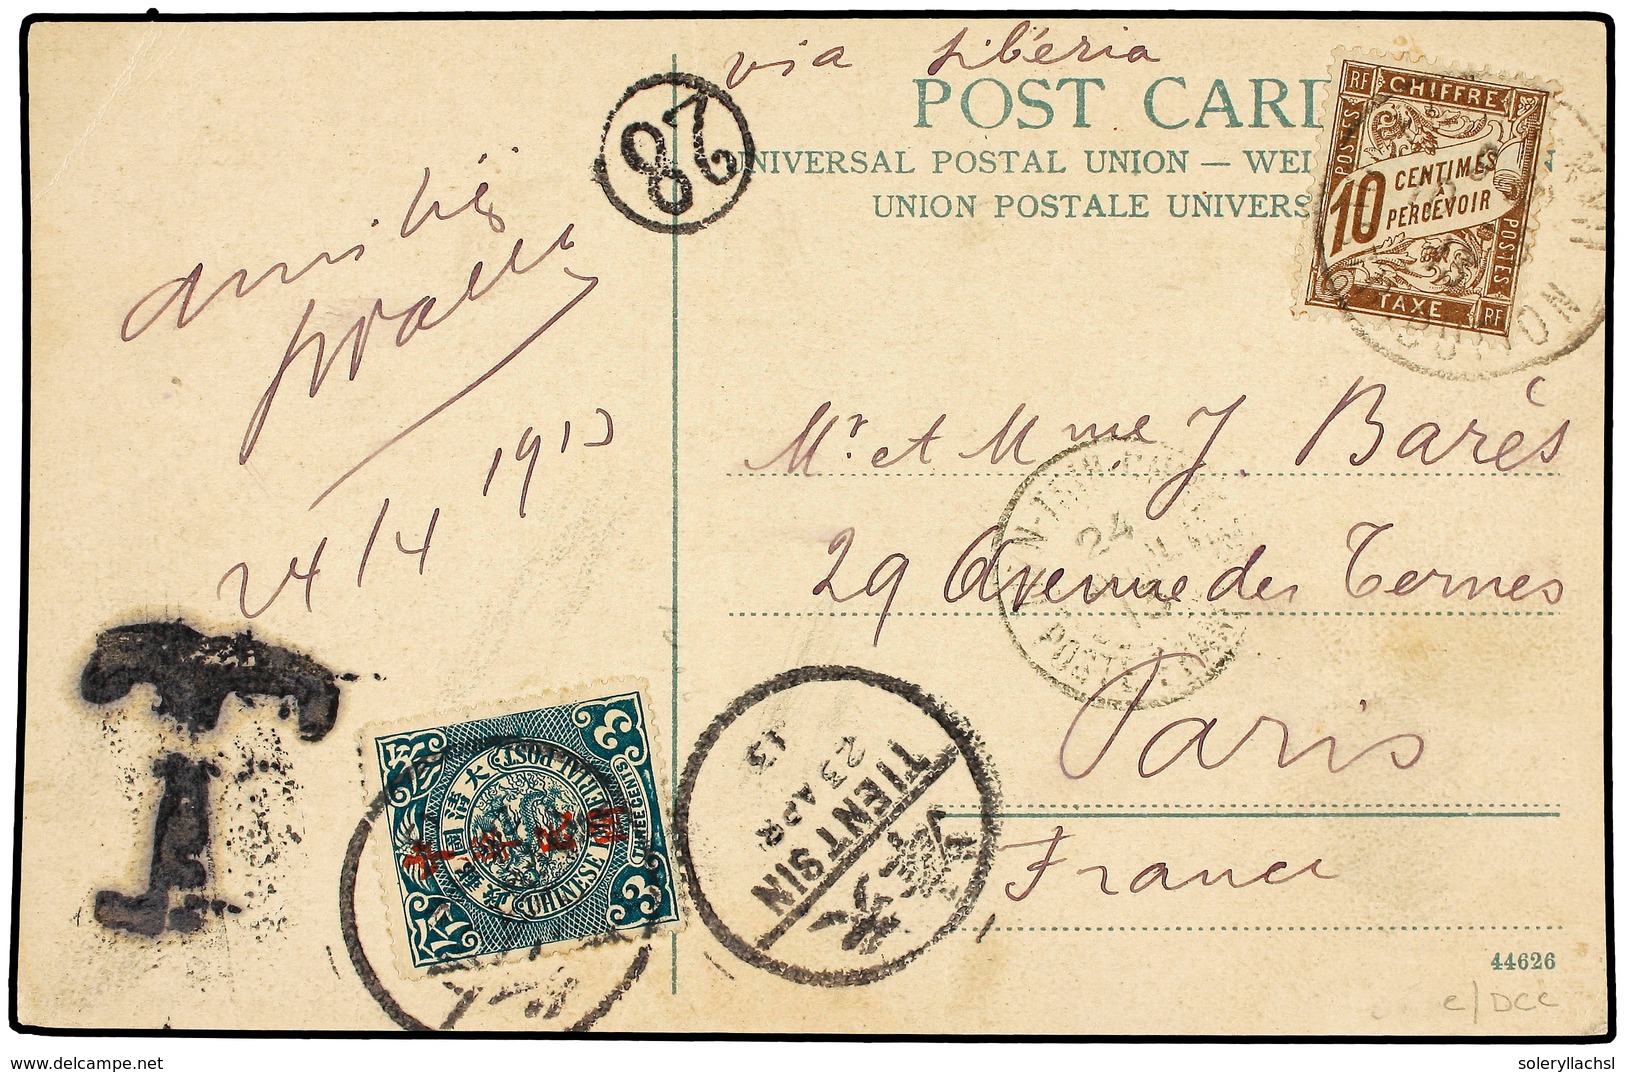 via Sibéria
POST CAR
UNIVERSAL POSTAL UNION — WEL N
UNION POSTALE UNIVERS
28
RF CHIFFRE
POSTES
10 CENTIMES
À
PERCEVOIR
POSTES
TAXE RF
amitiés
24/4 1913
Mr. et Mme J. Barès
29 Avenue des Ternes
Paris
France
24
POSTE
T
3 3
THREE CENTS
CHINESE IMPERIAL POST
大清國郵政
中華民國
TIENTSIN
23 APR
13
44626
c/DCC
delcampe.net
soleryllachsl